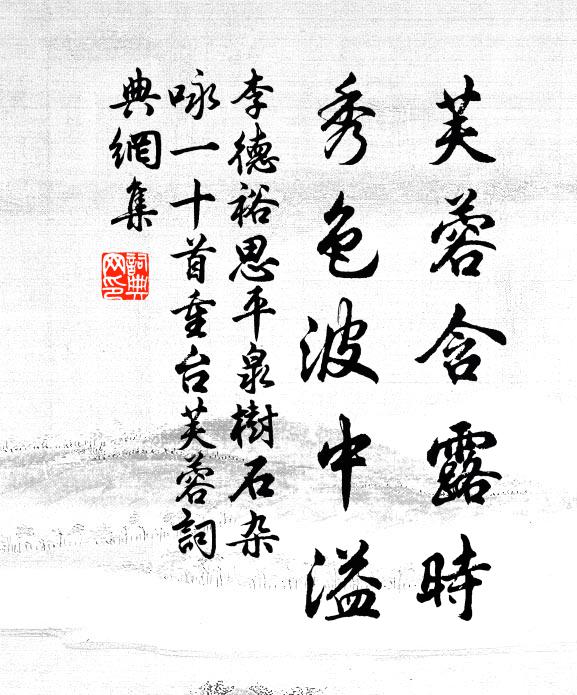 芙蓉含露時
秀色波中溢
李德裕思平泉樹石杂
咏一十首重台芙蓉詞
典網集
詞典
网印